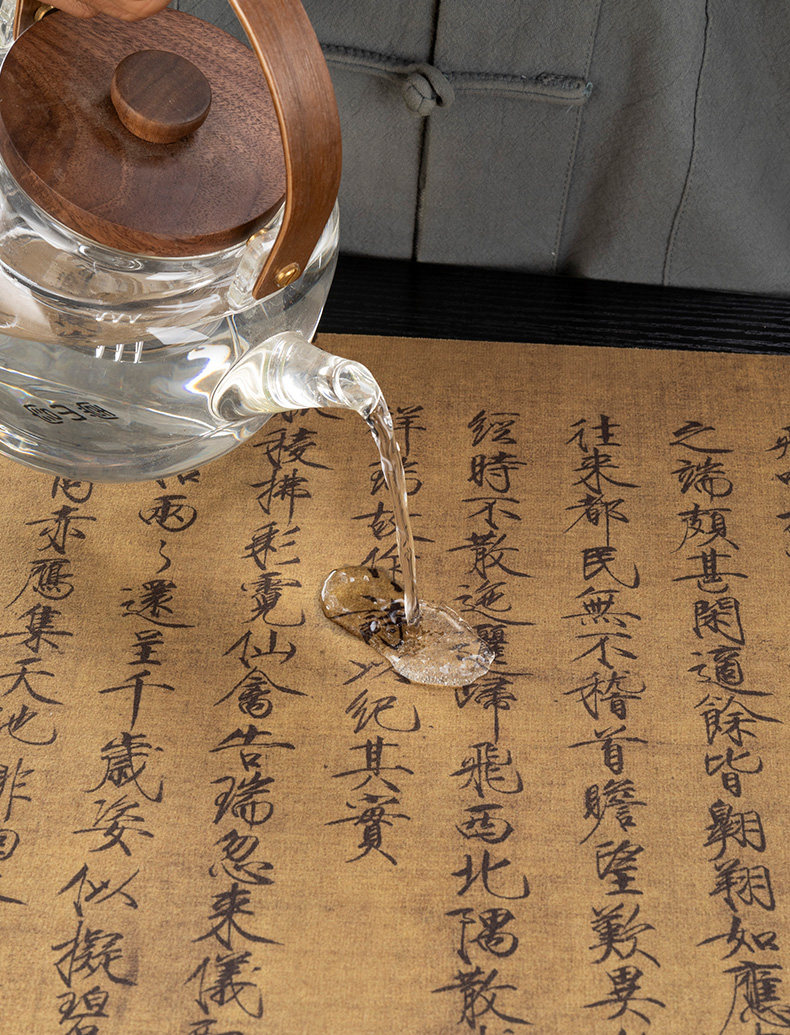 之端頗甚閑適餘皆翱翔如應
往來都民無不稽首瞻望歎異
經時不散迤邐歸飛西北隅散
祥瑞故作以紀其實
稜拂彩霓仙禽告瑞忽來儀
兩〻還呈千歲姿似擬碧
赤鴈集天池